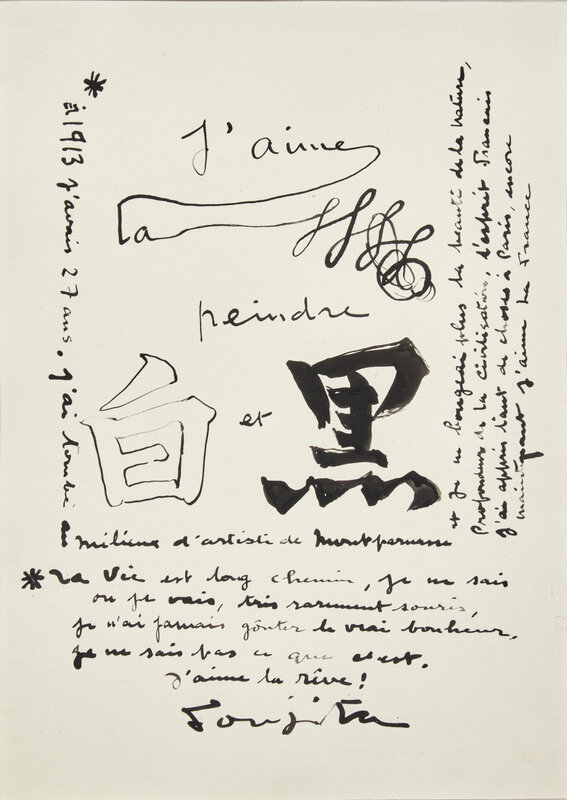 J'aime
la
peindre
白 et 黒
* à 1913 j'avais 27 ans. j'ai tombé
au milieu d'artiste de Montparnasse
et je ne bougeai plus la beauté de la nature,
Profondeur de la civilisation, l'esprit Francais
j'ai appris tant de choses à Paris, encore
maintenant j'aime la France
* La Vie est long chemin, je ne sais
ou je vais, très rarement souris,
je n'ai jamais goûter le vrai bonheur,
je ne sais pas ce que c'est.
J'aime la rêve!
Foujita